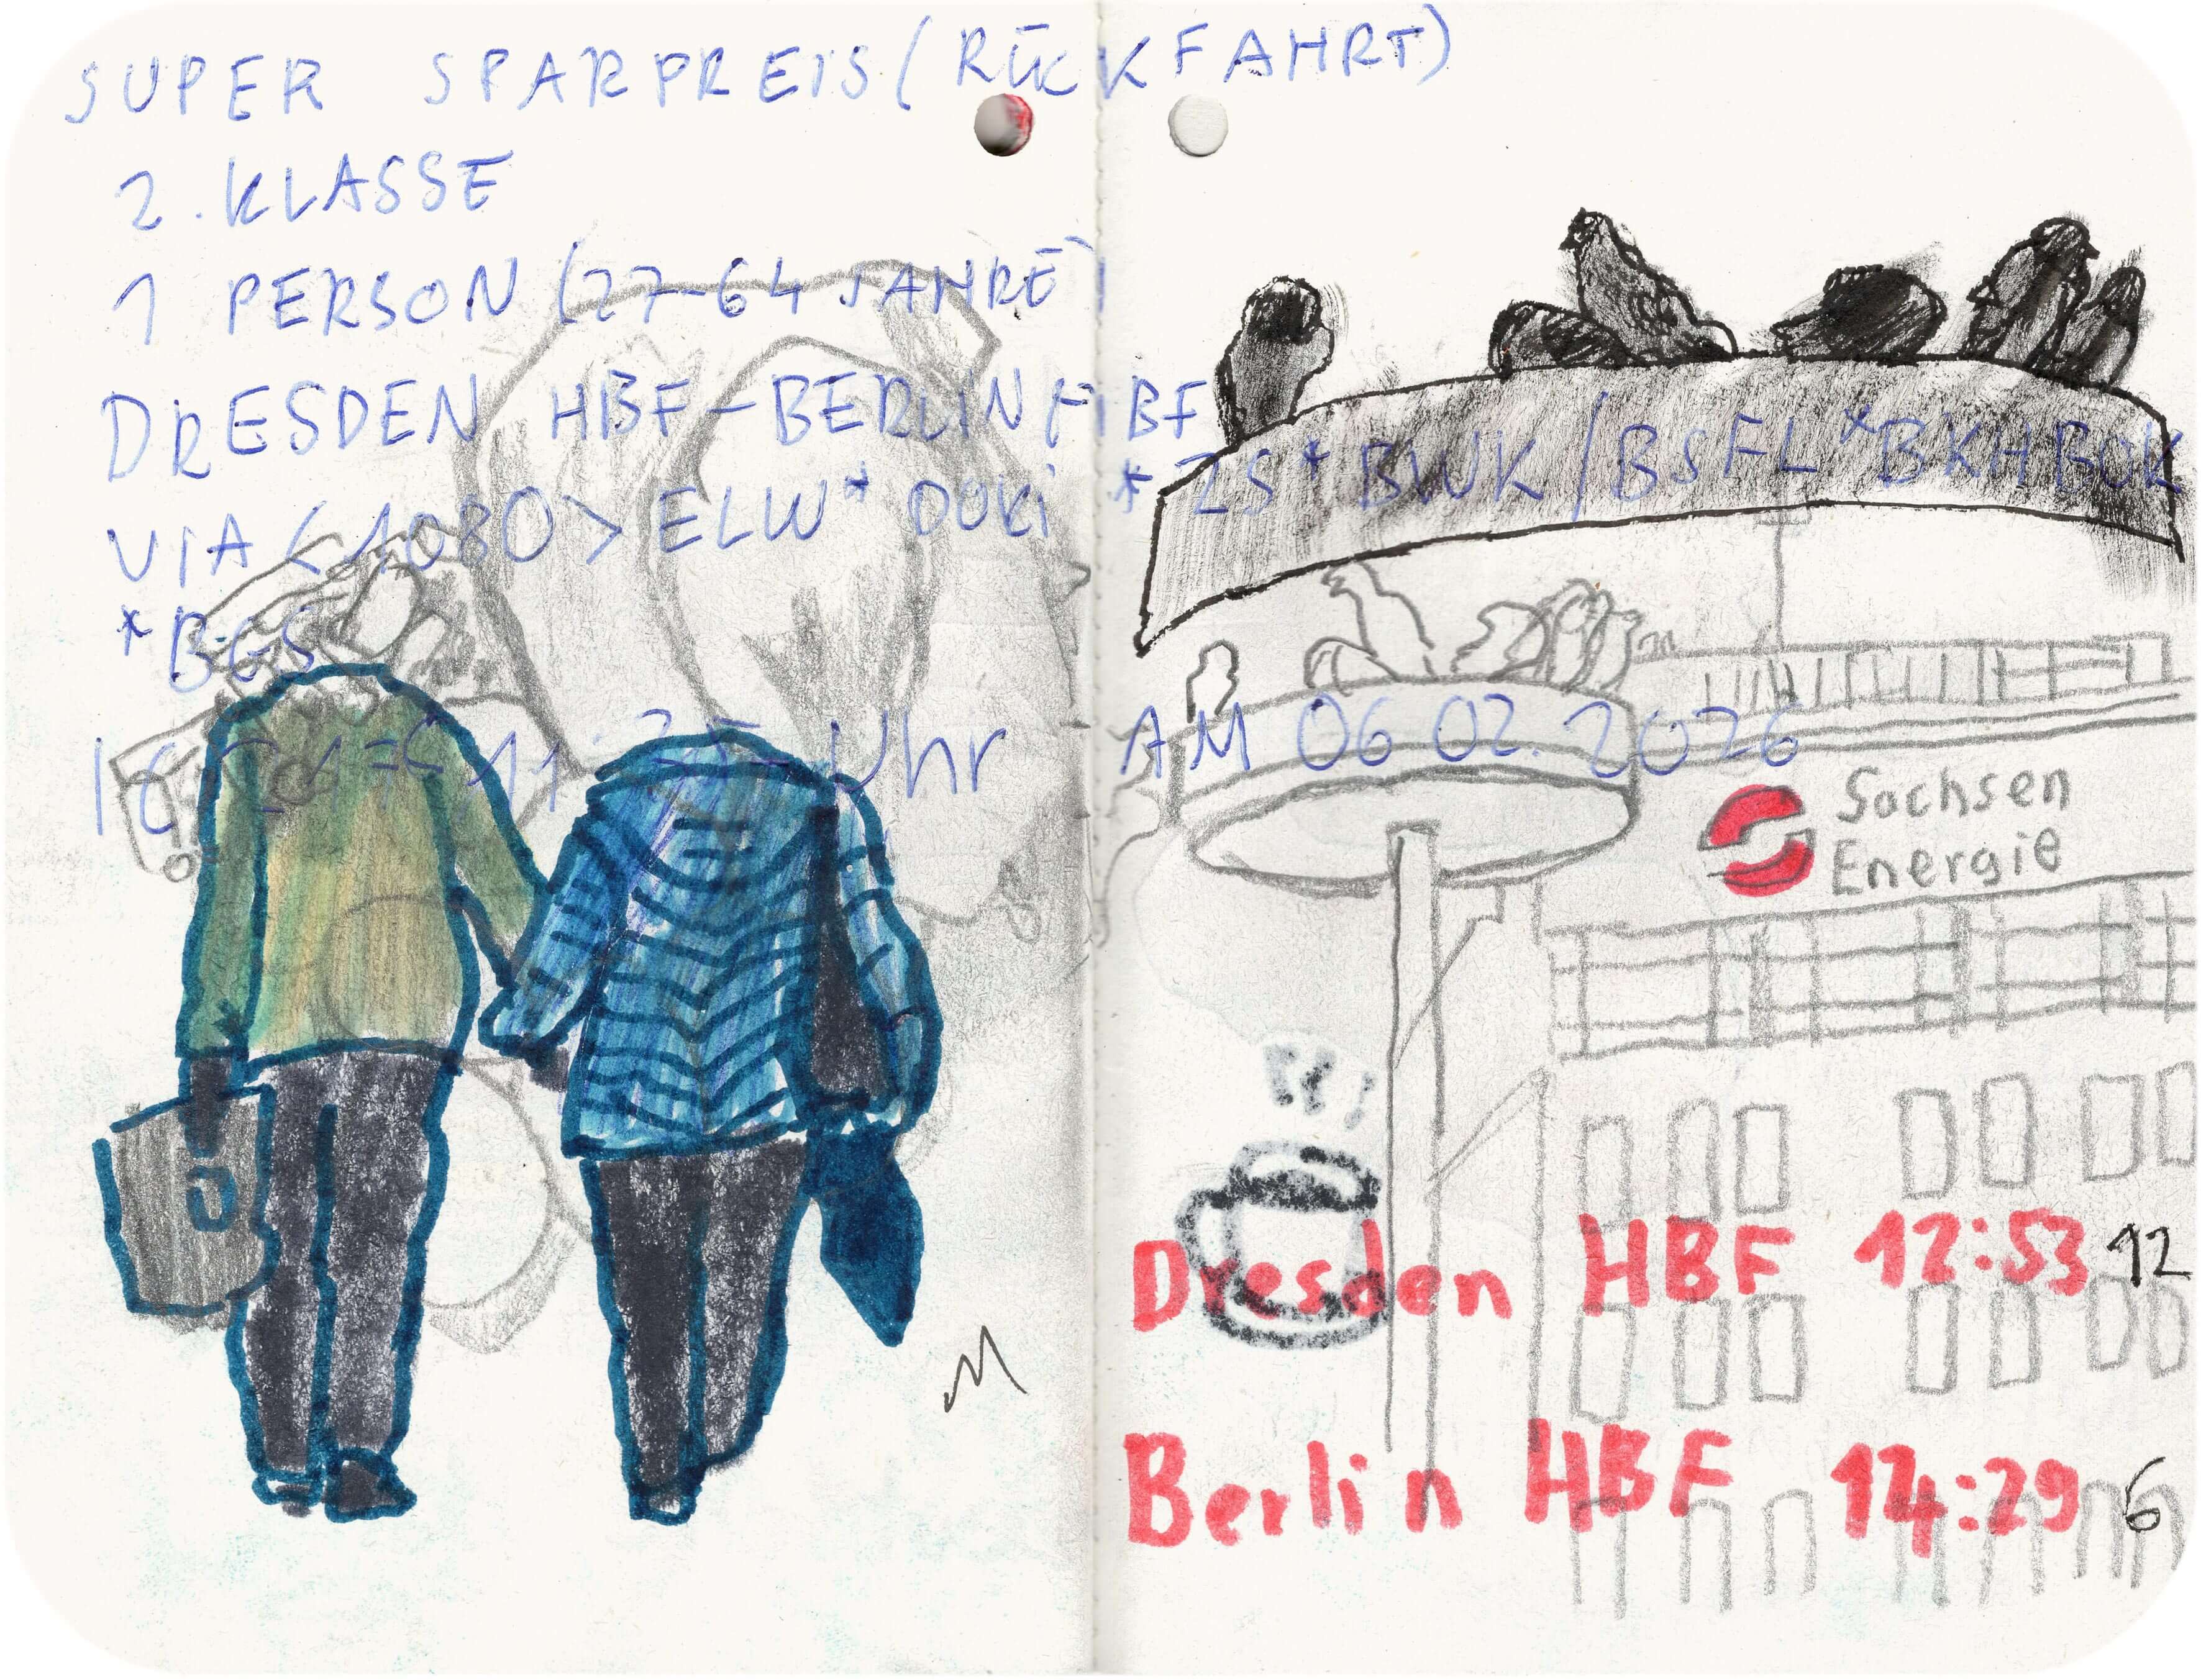 SUPER SPARPREIS (RÜCKFAHRT)
2. KLASSE
1 PERSON (27-64 JAHRE)
DRESDEN HBF - BERLIN HBF
VIA <1080> ELW* *ZS* BWK/BSFL *BKHBOK
*BGS
11:35 Uhr AM 06 02. 2026
Sachsen
Energie
Dresden HBF 12:53 12
Berlin HBF 14:29 6